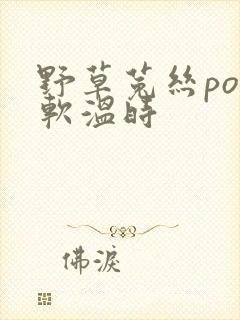 野草菟丝po
软温时
佛淚